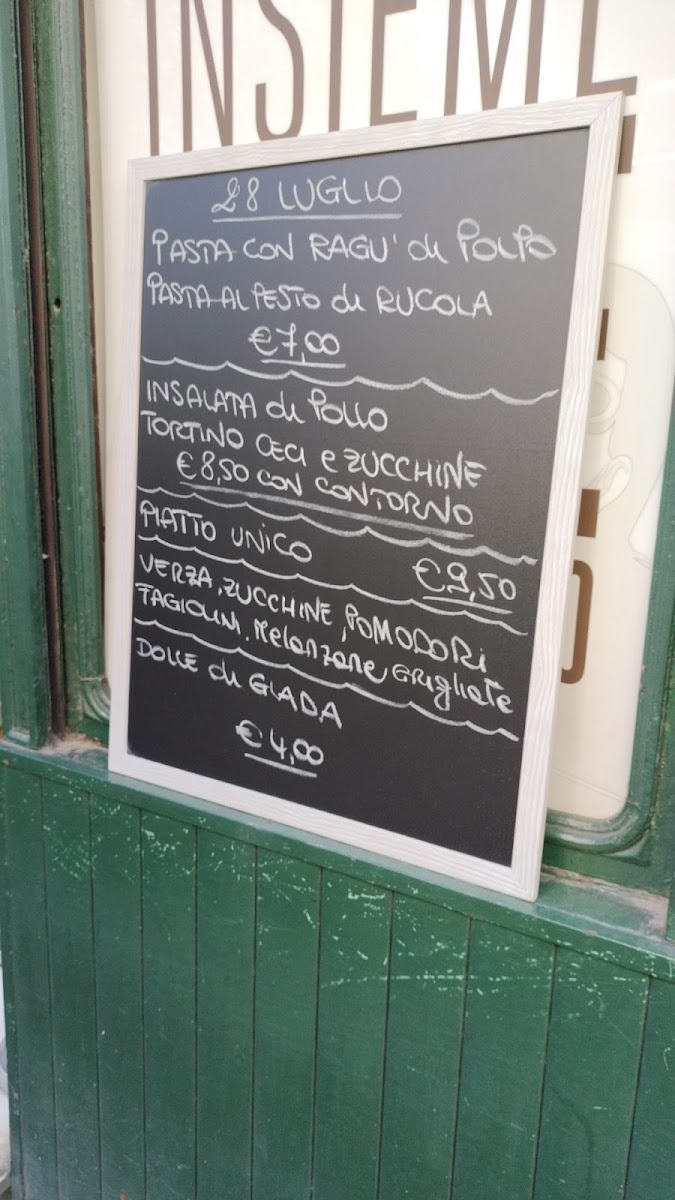 INSIEME
28 LUGLIO
PASTA CON RAGU' di POLPO
PASTA AL PESTO di RUCOLA
€7,00
INSALATA di POLLO
TORTINO CECI e ZUCCHINE
€8,50 CON CONTORNO
PIATTO UNICO €9,50
VERZA, ZUCCHINE, POMODORI
FAGIOLINI, MeLanzane GRIGLIATE
DOLCE di GIADA
€4,00